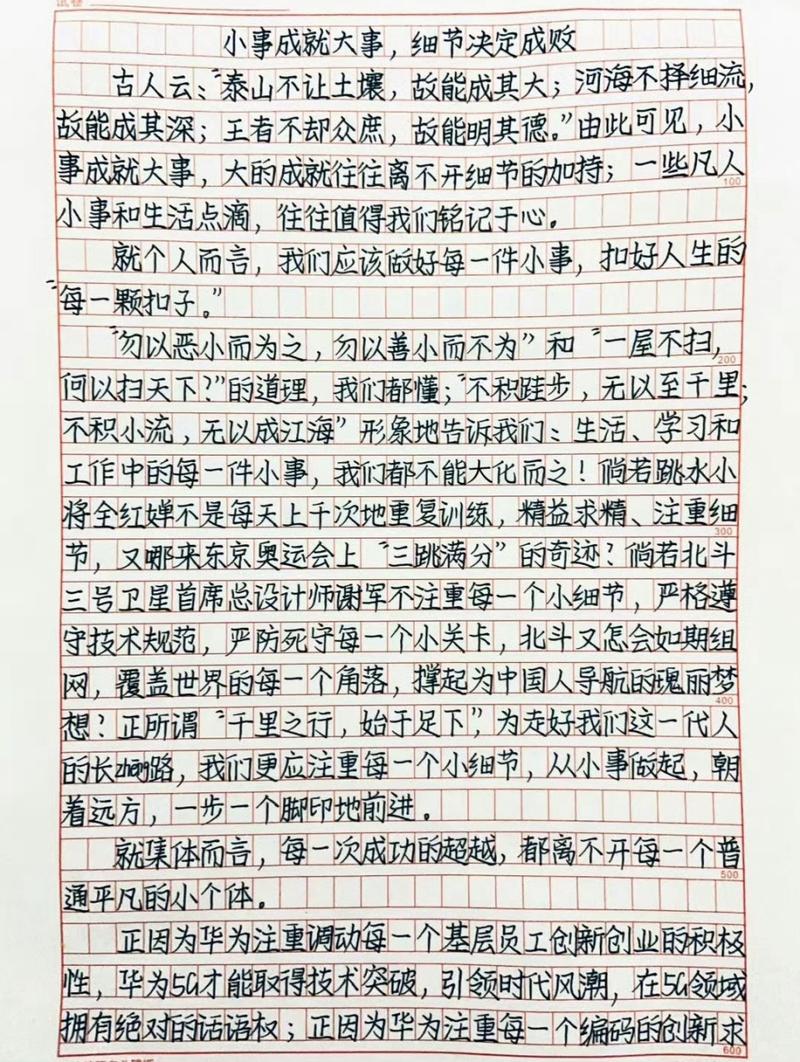 小事成就大事，细节决定成败
古人云：“泰山不让土壤，故能成其大；河海不择细流，
故能成其深；王者不却众庶，故能明其德。”由此可见，小
事成就大事，大的成就往往离不开细节的加持；一些凡人
100
小事和生活点滴，往往值得我们铭记于心。
就个人而言，我们应该做好每一件小事，扣好人生的
“每一颗扣子。”
“勿以恶小而为之，勿以善小而不为”和“一屋不扫，
200
何以扫天下？”的道理，我们都懂；“不积跬步，无以至千里；
不积小流，无以成江海”形象地告诉我们：生活、学习和
工作中的每一件小事，我们都不能大化而之！倘若跳水小
将全红婵不是每天上千次地重复训练，精益求精、注重细
300
节，又哪来东京奥运会上“三跳满分”的奇迹？倘若北斗
三号卫星首席总设计师谢军不注重每一个小细节，严格遵
守技术规范，严防死守每一个小关卡，北斗又怎会如期组
网，覆盖世界的每一个角落，撑起为中国人导航的瑰丽梦
400
想？正所谓“千里之行，始于足下”，为走好我们这一代人
的长zheng路，我们更应注重每一个小细节，从小事做起，朝
着远方，一步一个脚印地前进。
就集体而言，每一次成功的超越，都离不开每一个普
500
通平凡的小个体。
正因为华为注重调动每一个基层员工创新创业的积极
性，华为5G才能取得技术突破，引领时代风潮，在5G领域
拥有绝对的话语权；正因为华为注重每一个编码的创新求
600